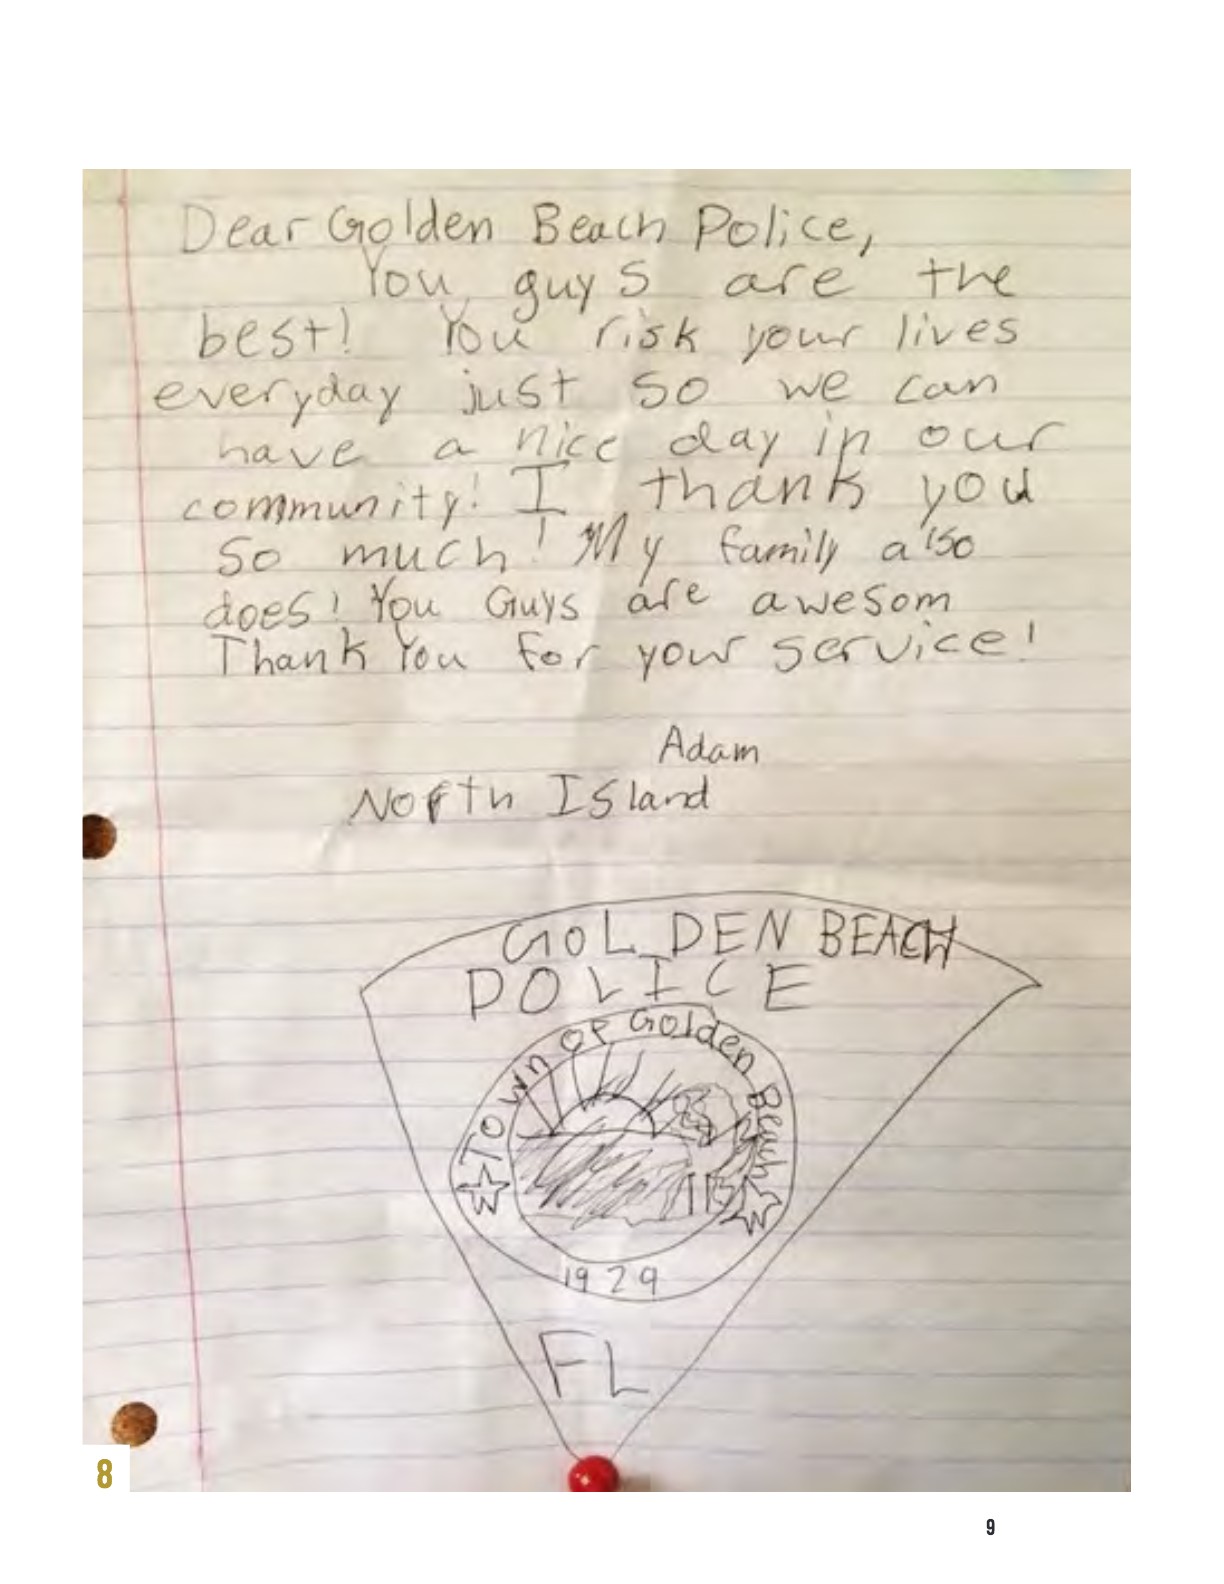 Dear Golden Beach Police,
You guys are the
best! You risk your lives
everyday just so we can
have a nice day in our
community! I thank you
so much! My family also
does! You Guys are awesom
Thank You for your service!
Adam
North Island
GOLDEN BEACH
POLICE
Town OF Golden Beach
1929
FL
8
9